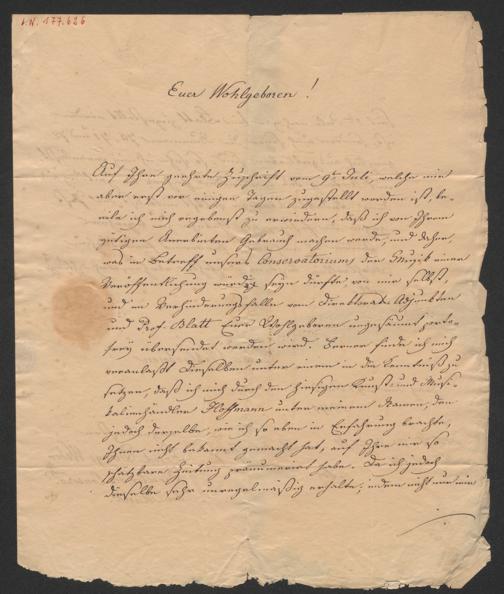 I.N. 177.626
Euer Wohlgeboren!
Auf Ihre geehrte Zuschrift vom 9t Juli, welche mir
aber erst vor einigen Tagen zugestellt worden ist, be-
eile ich mich ergebenst zu erwiedern, daß ich von Ihrem
gütigen Anerbieten Gebrauch machen werde, und daher,
was in Betreff unseres Conservatoriums der Musik einer
Veröffentlichung würdig seyn dürfte von mir selbst,
und im Verhinderungsfalle vom Direktorats Adjunkten
und Prof. Blatt Euer Wohlgeboren ungesäumt porto-
frey übersendet werden wird. Ferner finde ich mich
veranlaßt Dieselben unter einem in die Kenntniß zu
setzen, daß ich mich durch den hiesigen Kunst und Musi-
kalienhändler Hoffmann unter meinem Namen, den
jedoch derselbe, wie ich so eben in Erfahrung brachte,
Ihnen nicht bekannt gemacht hat, auf Ihre mir so
schätzbare Zeitung pränumerirt habe. Da ich jedoch
dieselbe sehr unregelmäßig erhalte; indem nicht nur ein